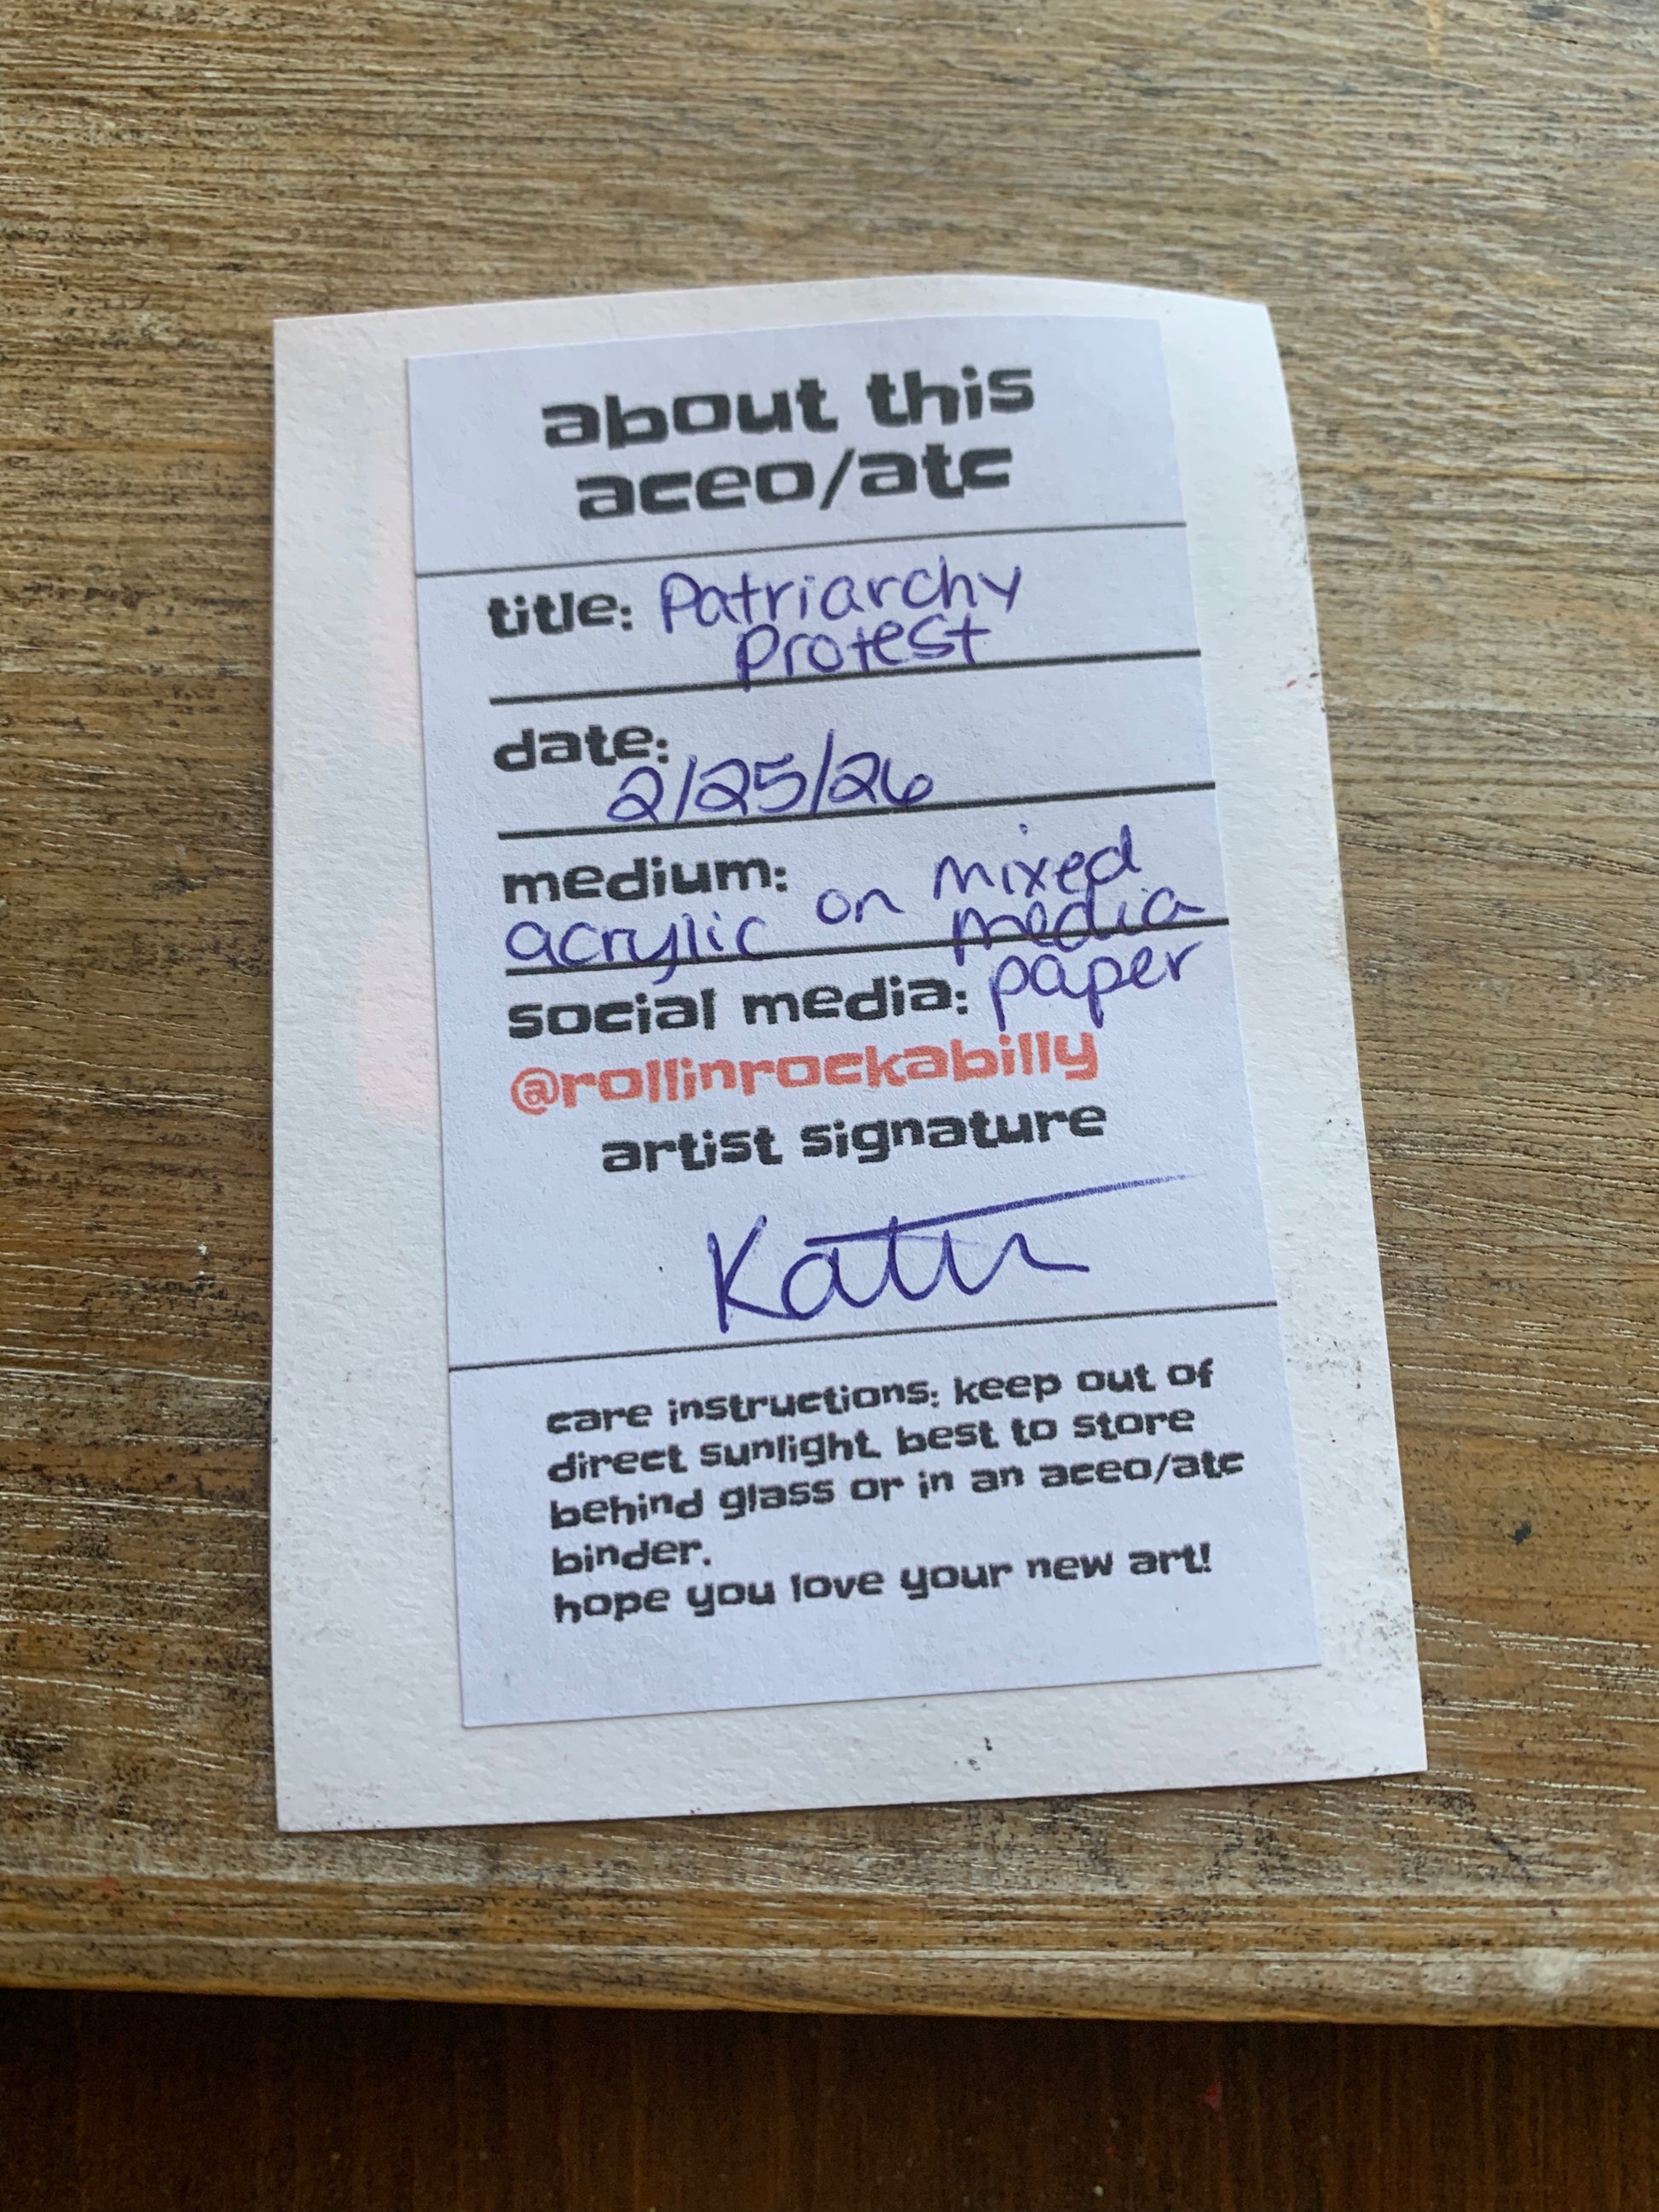 about this
aceo/atc
title: Patriarchy
Protest
date:
2/25/26
medium:
acrylic on mixed
media
paper
social media:
@rollinrockabilly
artist signature
care instructions: keep out of
direct sunlight. best to store
behind glass or in an aceo/atc
binder.
hope you love your new art!